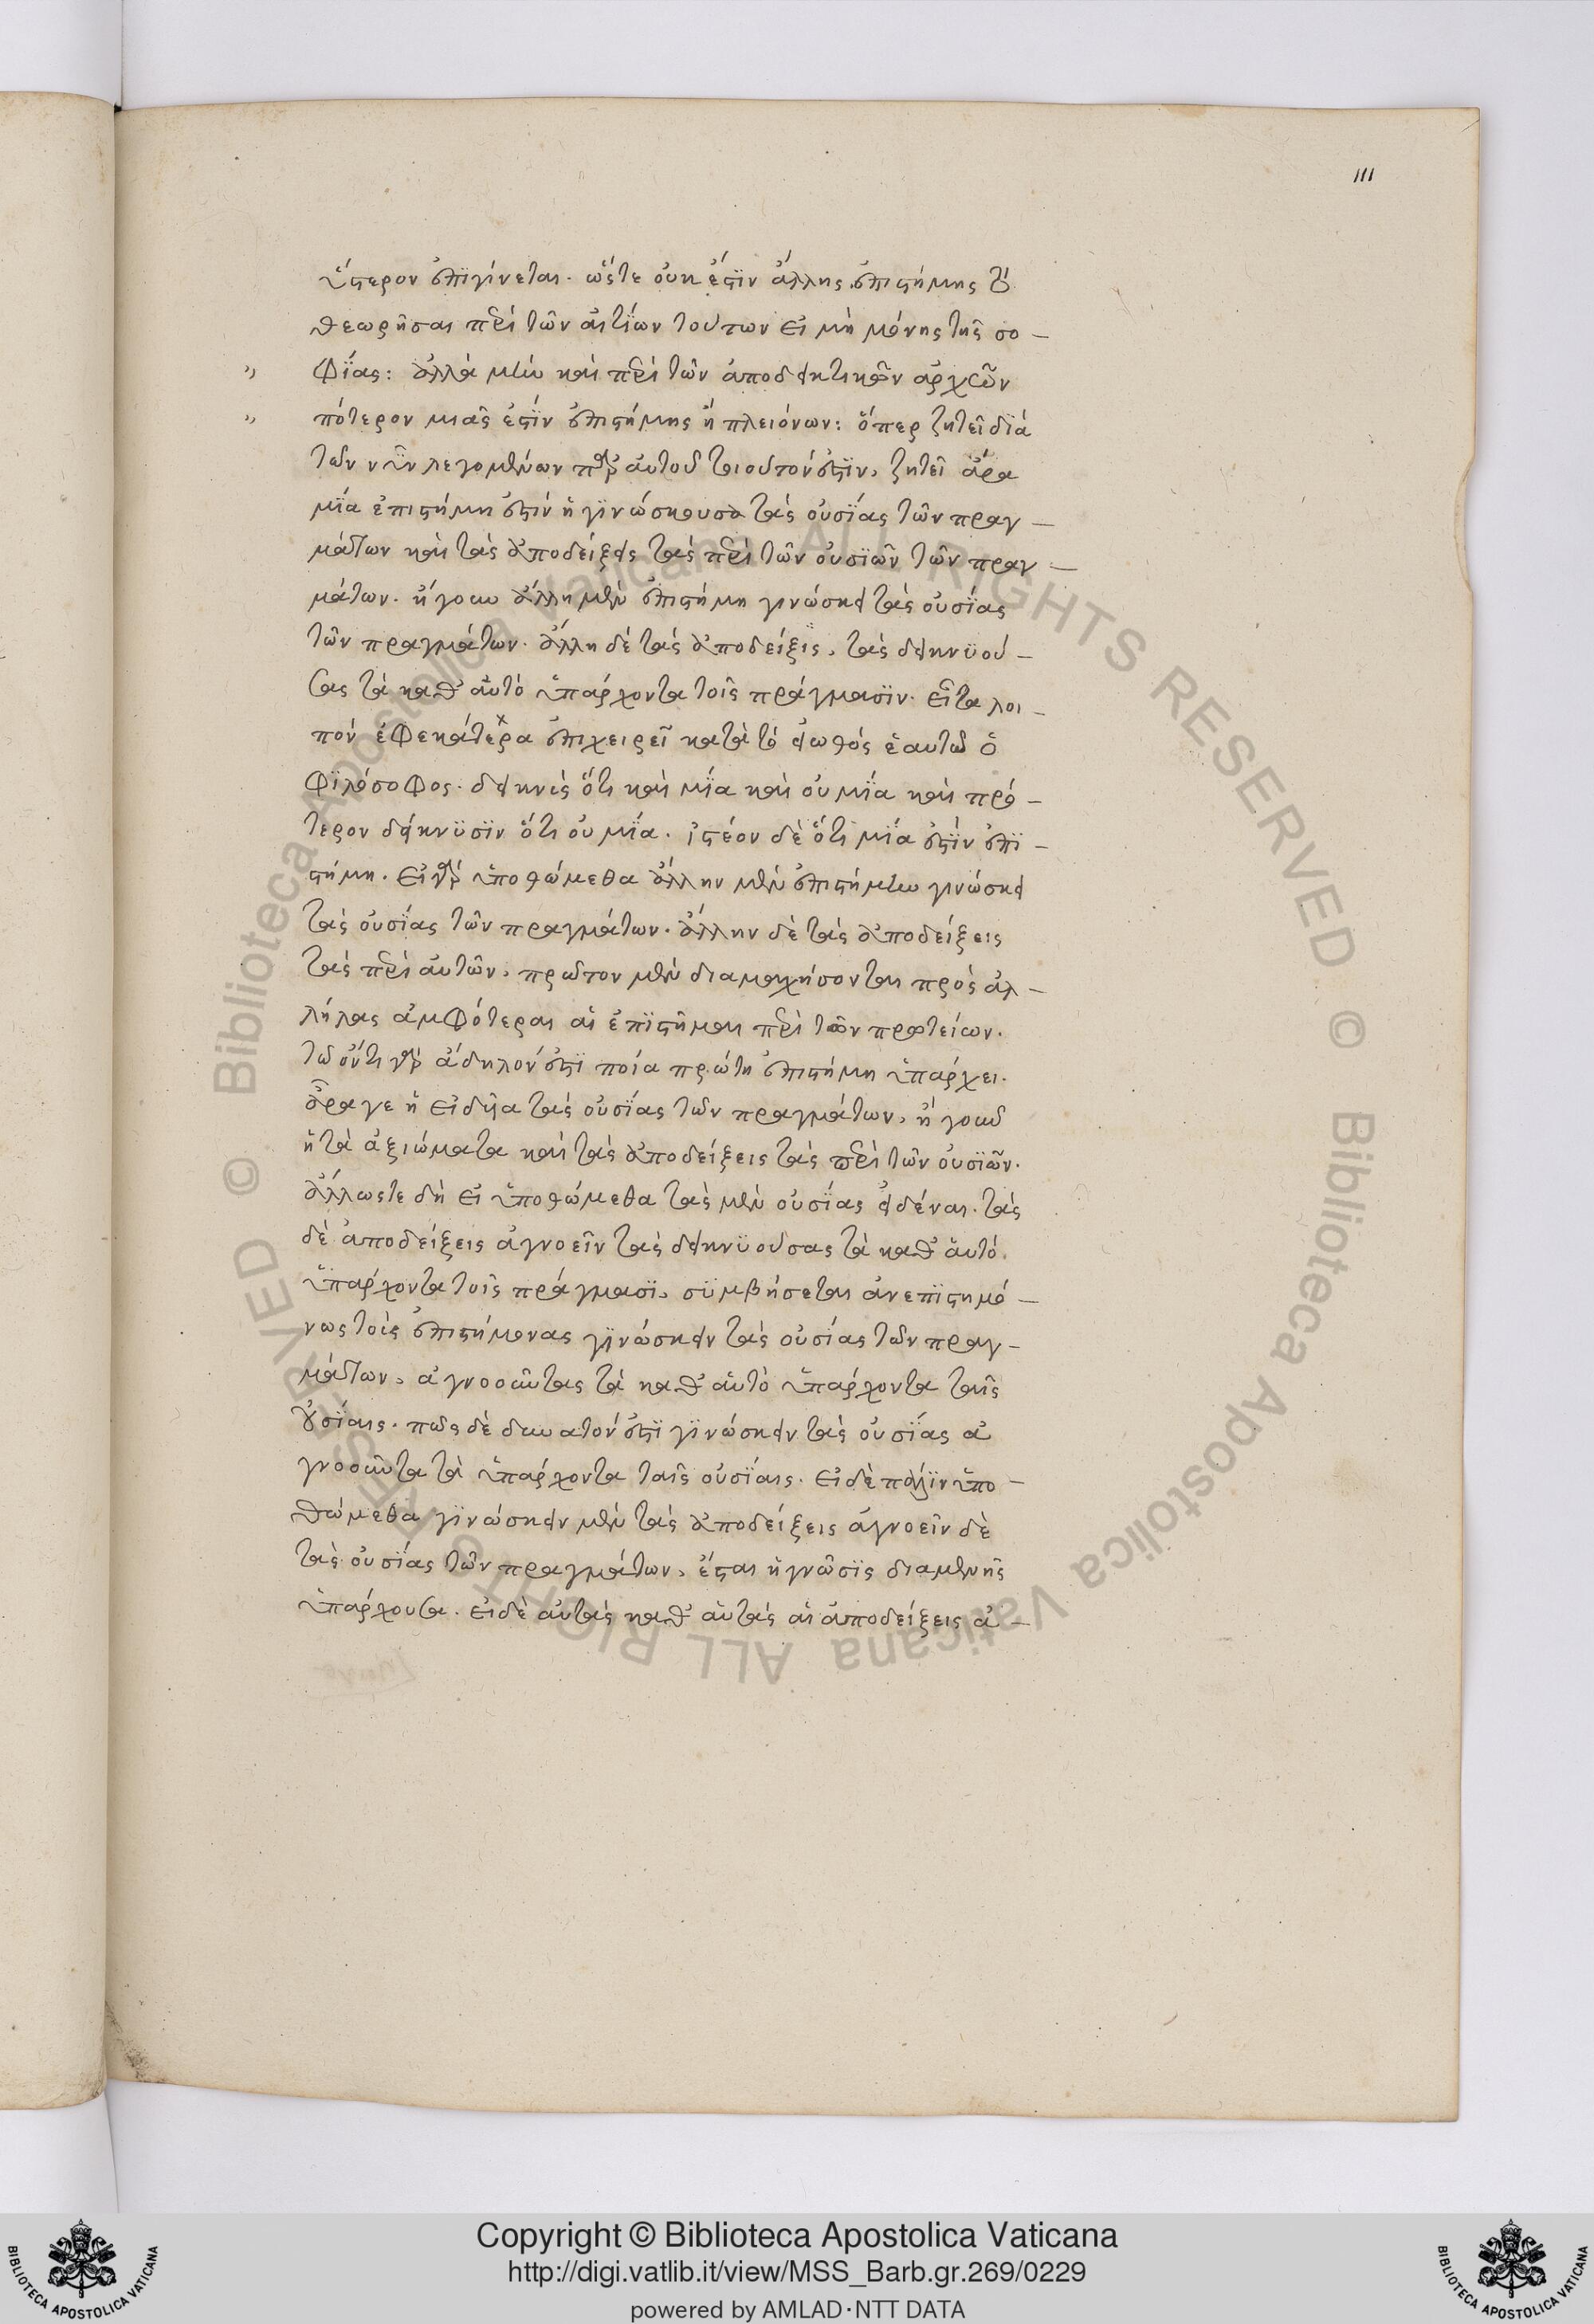 111
ὕστερον ἐπϊγίνεται. ὥστε οὐκ ἔστϊν ἄλλης ἐπιστήμης τὸ
θεωρῆσαι περὶ τῶν αἰτΐων τούτων εἰ μὴ μόνης τῆς σο-
" φΐας: ἀλλὰ μὴν καὶ περὶ τῶν ἀποδεικτικῶν ἀρχῶν
" πότερον μιᾶς ἐστΐν ἐπιστήμης ἢ πλειόνων: ὅπερ ζητεῖ δϊὰ
τῶν νῦν λεγομένων παρ' αὐτοῦ τοιοῦτον ἐστϊν, ζητεῖ ἆρα
μΐα ἐπιστήμη ἐστὶν ἡ γϊνώσκουσα τὰς οὐσΐας τῶν πραγ-
μάτων καὶ τὰς ἀποδείξεις τὰς περὶ τῶν οὐσϊῶν τῶν πραγ-
μάτων. ἤγουν ἄλλη μὲν ἐπιστήμη γινώσκει τὰς οὐσΐας
τῶν πραγμάτων. ἄλλη δὲ τὰς ἀποδείξϊς, τὰς δεικνϋού-
σας τὰ καθ' αὑτὸ ὑπάρχοντα τοῖς πράγμασϊν. εἶτα λοι-
πὸν ἐφεκάτερα ἐπιχειρεῖ κατὰ τὸ εἰωθὸς ἑαυτῶ ὁ
φϊλόσοφος. δεικνὺς ὅτι καὶ μΐα καὶ οὐ μΐα καὶ πρό-
τερον δείκνϋσϊν ὅτι οὐ μΐα. ἰστέον δὲ ὅτι μΐα ἐστΐν ἐπϊ-
στήμη. εἰ γὰρ ὑποθώμεθα ἄλλην μὲν ἐπιστήμην γινώσκει
τὰς οὐσΐας τῶν πραγμάτων. ἄλλην δὲ τὰς ἀποδείξεις
τὰς περὶ αὐτῶν, πρῶτον μὲν διαμαχήσονται πρὸς ἀλ-
λήλας ἀμφότεραι αἱ ἐπϊστῆμαι περὶ τῶν πρωτείων.
τῶ ὄντι γὰρ ἄδηλον ἐστϊ ποία πρώτη ἐπιστήμη ὑπάρχει.
ἆραγε ἡ εἰδυῖα τὰς οὐσΐας τῶν πραγμάτων, ἤγουν
ἡ τὰ ἀξιώματα καὶ τὰς ἀποδείξεις τὰς περὶ τῶν οὐσϊῶν.
ἄλλωστε δὴ εἰ ὑποθώμεθα τὰς μὲν οὐσΐας εἰδέναι. τὰς
δὲ ἀποδείξεις ἀγνοεῖν τὰς δεικνϋούσας τὰ καθ' αὑτὸ
ὑπάρχοντα τοῖς πράγμασϊ, σϋμβήσεται ἀνεπϊστημό-
νως τοὺς ἐπιστήμονας γϊνώσκειν τὰς οὐσΐας τῶν πραγ-
μάτων, ἀγνοοῦντας τὰ καθ' αὑτὸ ὑπάρχοντα ταῖς
οὐσΐαις. πῶς δὲ δυνατὸν ἐστϊ γϊνώσκειν τὰς οὐσΐας ἀ
γνοοῦντα τὰ ὑπάρχοντα ταῖς οὐσΐαις. εἰ δὲ πάλϊν ὑπο-
θώμεθα γϊνώσκειν μὲν τὰς ἀποδείξεις ἀγνοεῖν δὲ
τὰς οὐσΐας τῶν πραγμάτων, ἔσται ἡ γνῶσϊς διαμενῆς
ὑπάρχουσα. εἰ δὲ αὐτὰς καθ' αὑτὰς αἱ ἀποδείξεις ἀ-
© Biblioteca Apostolica Vaticana ALL RIGHTS RESERVED © Biblioteca Apostolica Vaticana ALL RIGHTS RESERVED
Copyright © Biblioteca Apostolica Vaticana
http://digi.vatlib.it/view/MSS_Barb.gr.269/0229
powered by AMLAD·NTT DATA
BIBLIOTECA APOSTOLICA VATICANA
BIBLIOTECA APOSTOLICA VATICANA